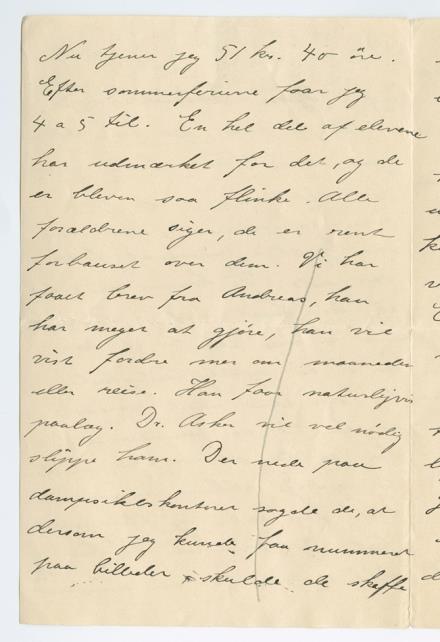 Nu tjener jeg 51 kr. 40 øre.
Efter sommerferierne faar jeg
4 a 5 til. En hel del af elevene
har udmærket for det, og de
er bleven saa flinke. Alle
forældrene siger, de er rent
forbauset over dem. Vi har
faaet brev fra Andreas, han
har meget at gjøre, han vil
vist fordre mer om maaneden
eller reise. Han faar naturligvis
paalæg. Dr. Asker vil vel nødig
slippe ham. Der nede paa
dampsikelskontoret sagde de, at
dersom jeg kunde faa nummeret
paa billedet skulde de skaffe